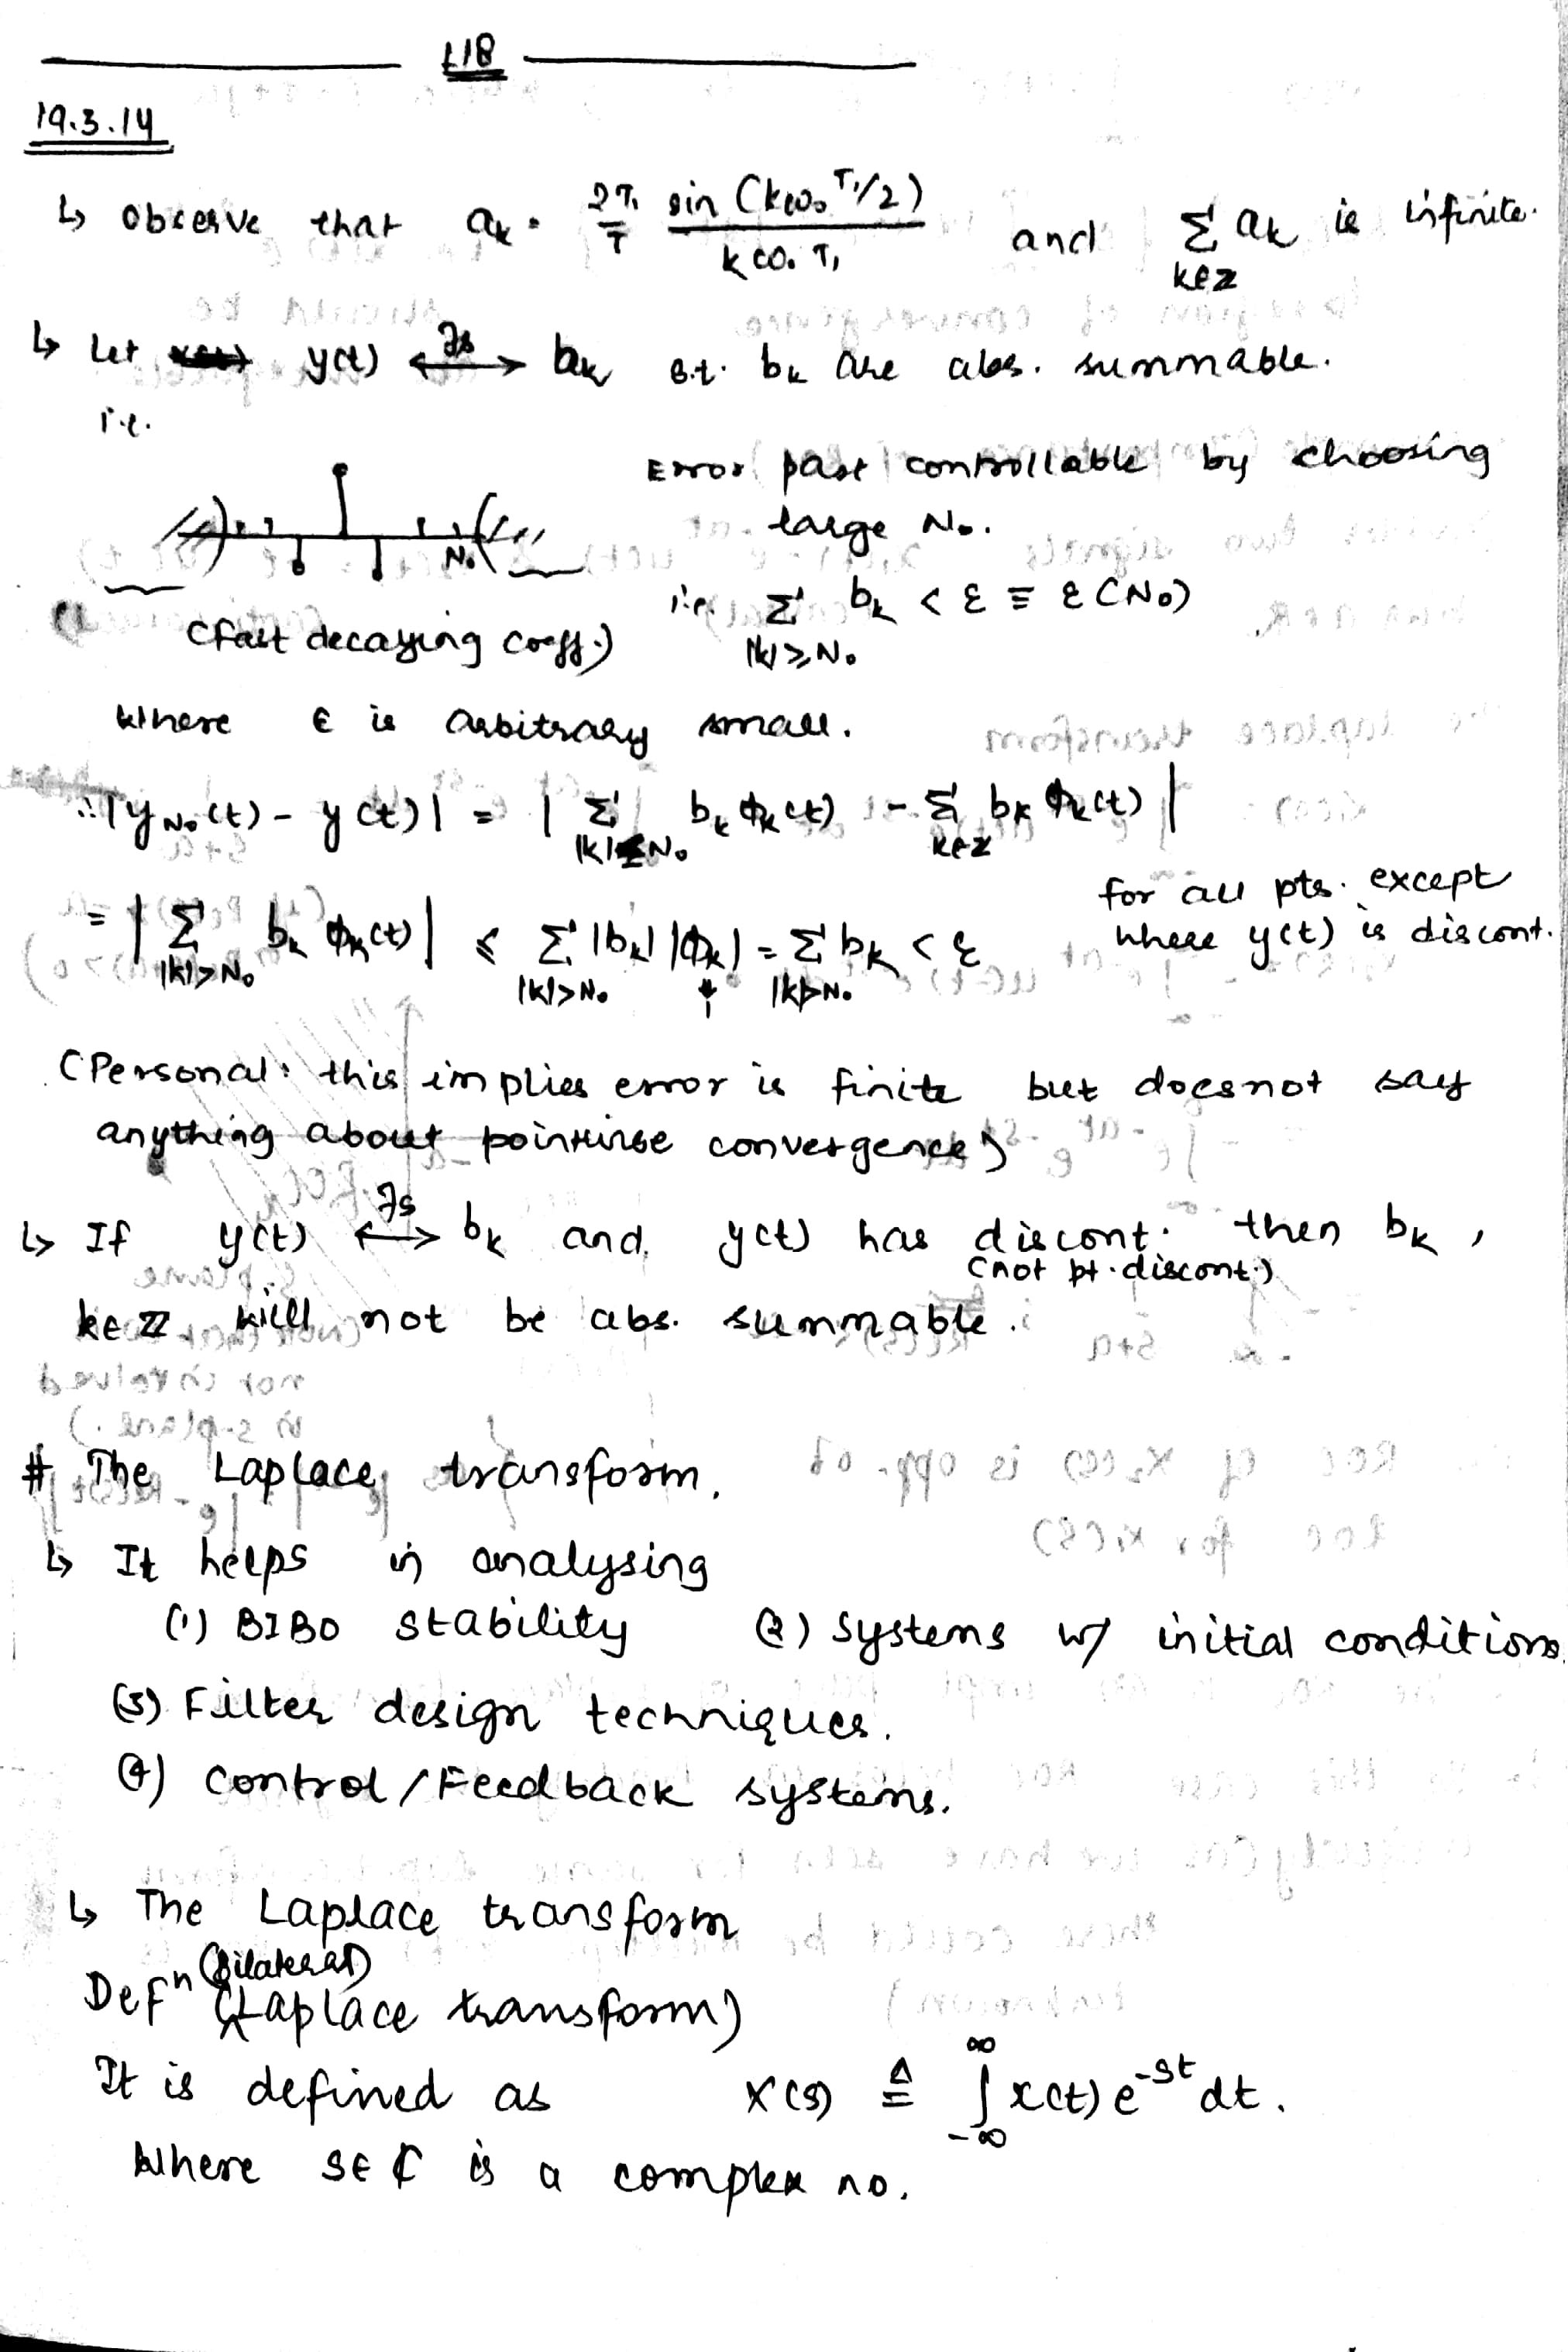 L18
19.3.14
↳ Observe that a_k = 2T₁/T sin(kω₀T₁/2)/kω₀T₁ and Σ_{k∈Z} a_k is infinite.
↳ Let y(t) ⟷^{FS} b_k s.t. b_k are abs. summable.
i.e.
Error part controllable by choosing
large N₀.
N₀
i.e. Σ_{|k|≥N₀} b_k < ε ≡ ε(N₀)
(Fast decaying coeff.)
Where ε is arbitrary small.
∴ |y_{N₀}(t) - y(t)| = | Σ_{|k|≤N₀} b_k ϕ_k(t) - Σ_{k∈Z} b_k ϕ_k(t) |
= | Σ_{|k|>N₀} b_k ϕ_k(t) | ≤ Σ_{|k|>N₀} |b_k| |ϕ_k| = Σ_{|k|>N₀} b_k < ε for all pts. except
1 where y(t) is discont.
(Personal: this implies error is finite but doesnot say
anything about pointwise convergence)
↳ If y(t) ⟷^{FS} b_k and y(t) has discont. then b_k ,
(not pt. discont.)
k∈ℤ will not be abs. summable.
# The Laplace transform.
↳ It helps in analysing
(1) BIBO stability (2) Systems w/ initial conditions
(3) Filter design techniques.
(4) Control/Feedback systems.
↳ The Laplace transform
(bilateral)
Defⁿ (Laplace transform)
It is defined as X(s) ≜ ∫_{-∞}^{∞} x(t) e^{-st} dt.
Where s∈ℂ is a complex no.